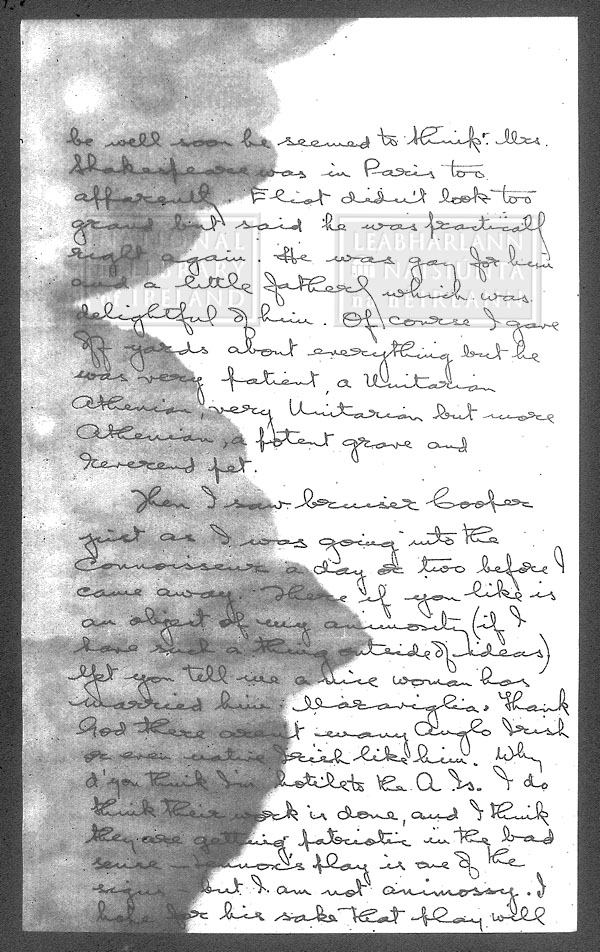 be well soon he seemed to think. Mrs.
Shakespeare was in Paris too
apparently. Eliot didn't look too
grand but said he was practically
right again. He was gay for him
and a little fatherly which was
delightful of him. Of course I gave
off yards about everything but he
was very patient, a Unitarian
Athenian, very Unitarian but more
Athenian, a potent grave and
reverend pet.
Then I saw bruiser Cooper
just as I was going into the
Connoisseur a day or two before I
came away. There if you like is
an object of my animosity (if I
have such a thing outside of ideas)
Yet you tell me a nice woman has
married him. Maraviglia. Thank
God there aren't many Anglo Irish
or even native Irish like him. Why
d'you think I'm hostile to the A. Is. I do
think their work is done, and I think
they are getting patriotic in the bad
sense - Lennox's play is one of the
signs but I am not animossy. I
hope for his sake that play will
NATIONAL
LIBRARY
OF IRELAND
LEABHARLANN
NÁISIÚNTA
NA HÉIREANN